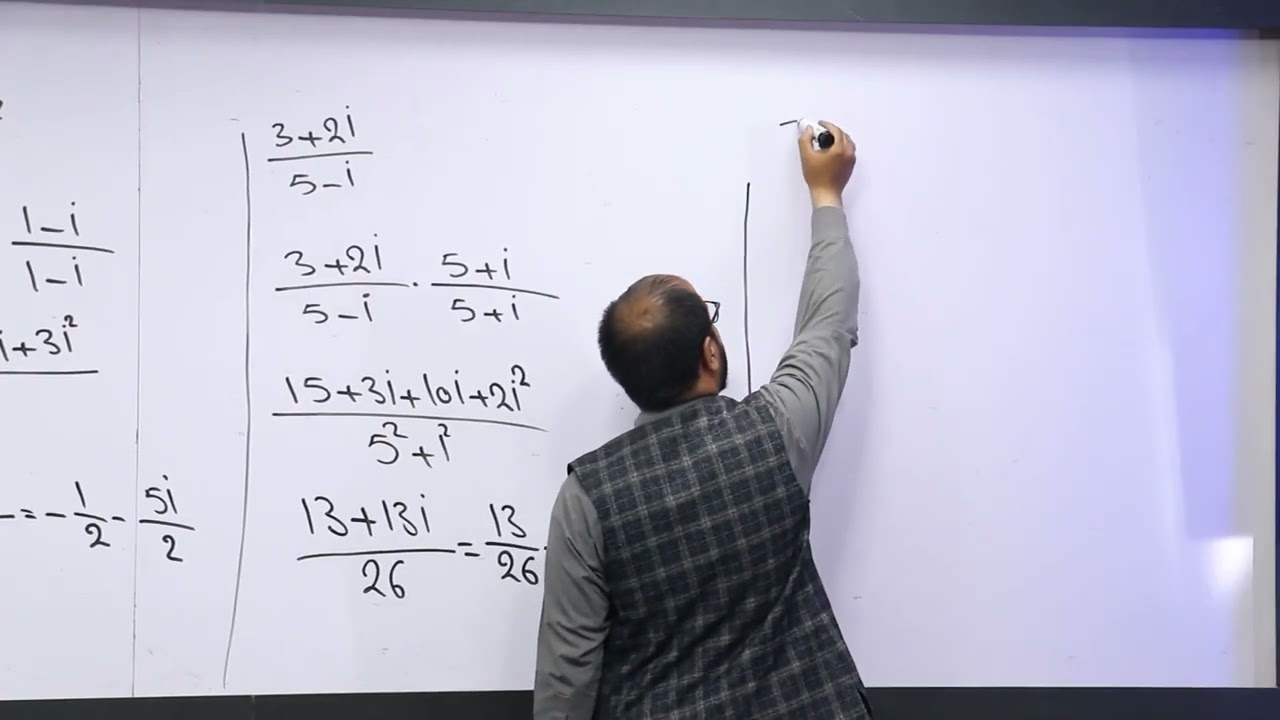 1-i
1-i
i+3i²
=-1/2-5i/2
3+2i
5-i
3+2i/5-i · 5+i/5+i
15+3i+10i+2i²
5²+i²
13+13i/26=13/26